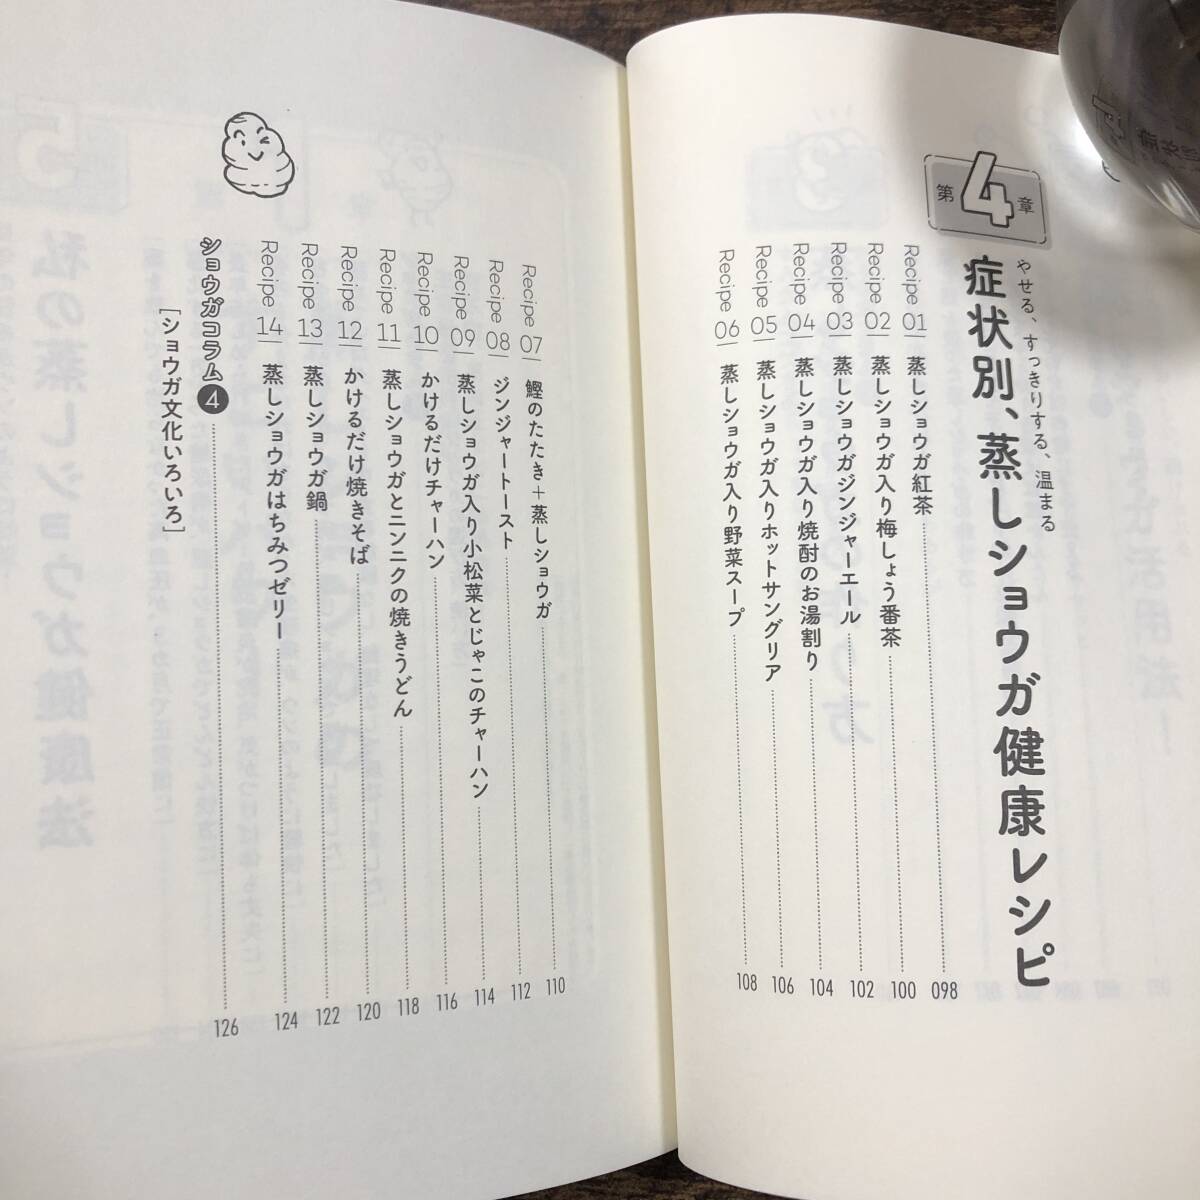 第4章
やせる、すっきりする、温まる
症状別、蒸しショウガ健康レシピ
Recipe 01 蒸しショウガ紅茶 098
Recipe 02 蒸しショウガ入り梅しょう番茶 100
Recipe 03 蒸しショウガジンジャーエール 102
Recipe 04 蒸しショウガ入り焼酎のお湯割り 104
Recipe 05 蒸しショウガ入りホットサングリア 106
Recipe 06 蒸しショウガ入り野菜スープ 108
Recipe 07 鰹のたたき+蒸しショウガ 110
Recipe 08 ジンジャートースト 112
Recipe 09 蒸しショウガ入り小松菜とじゃこのチャーハン 114
Recipe 10 かけるだけチャーハン 116
Recipe 11 蒸しショウガとニンニクの焼きうどん 118
Recipe 12 かけるだけ焼きそば 120
Recipe 13 蒸しショウガ鍋 122
Recipe 14 蒸しショウガはちみつゼリー 124
ショウガコラム4 126
[ショウガ文化いろいろ]
私の蒸しショウガ健康法